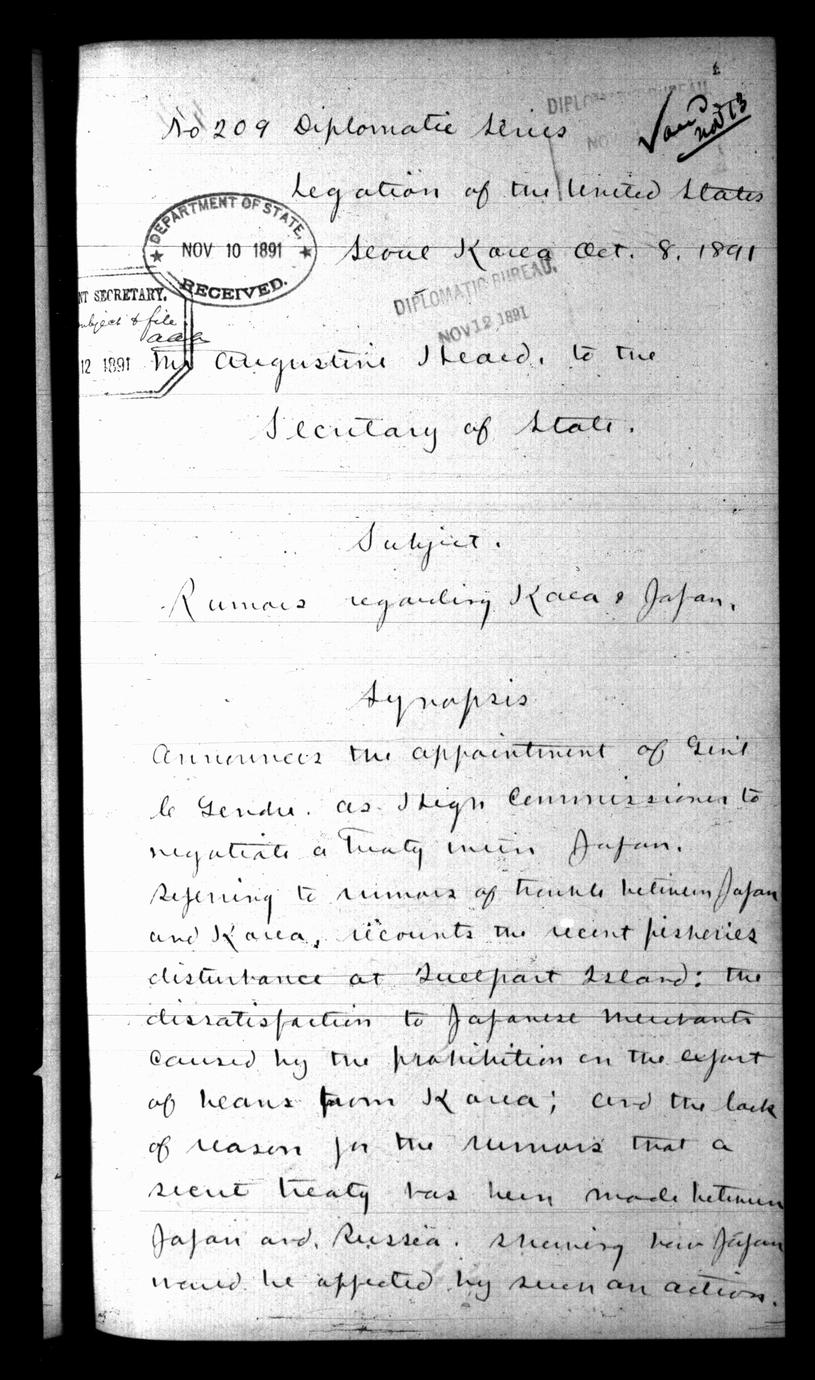 No 209 Diplomatic Series
DIPLOMATIC BUREAU
Nov 13
Legation of the United States
DEPARTMENT OF STATE,
NOV 10 1891
RECEIVED.
Seoul Korea Oct. 8. 1891
DIPLOMATIC BUREAU.
NOV 12 1891
NT SECRETARY.
subject & file
12 1891
Mr Augustine Heard. to the
Secretary of State.
Subject.
Rumors regarding Korea & Japan.
Synopsis
Announces the appointment of Gen'l
le Gendre. as High Commissioner to
negotiate a Treaty with Japan.
Referring to rumors of trouble between Japan
and Korea, recounts the recent fisheries
disturbance at Quelpart Island: the
dissatisfaction to Japanese Merchants
caused by the prohibition on the export
of beans from Korea; and the lack
of reason for the rumors that a
secret treaty has been made between
Japan and Russia. showing how Japan
would be affected by such an action.